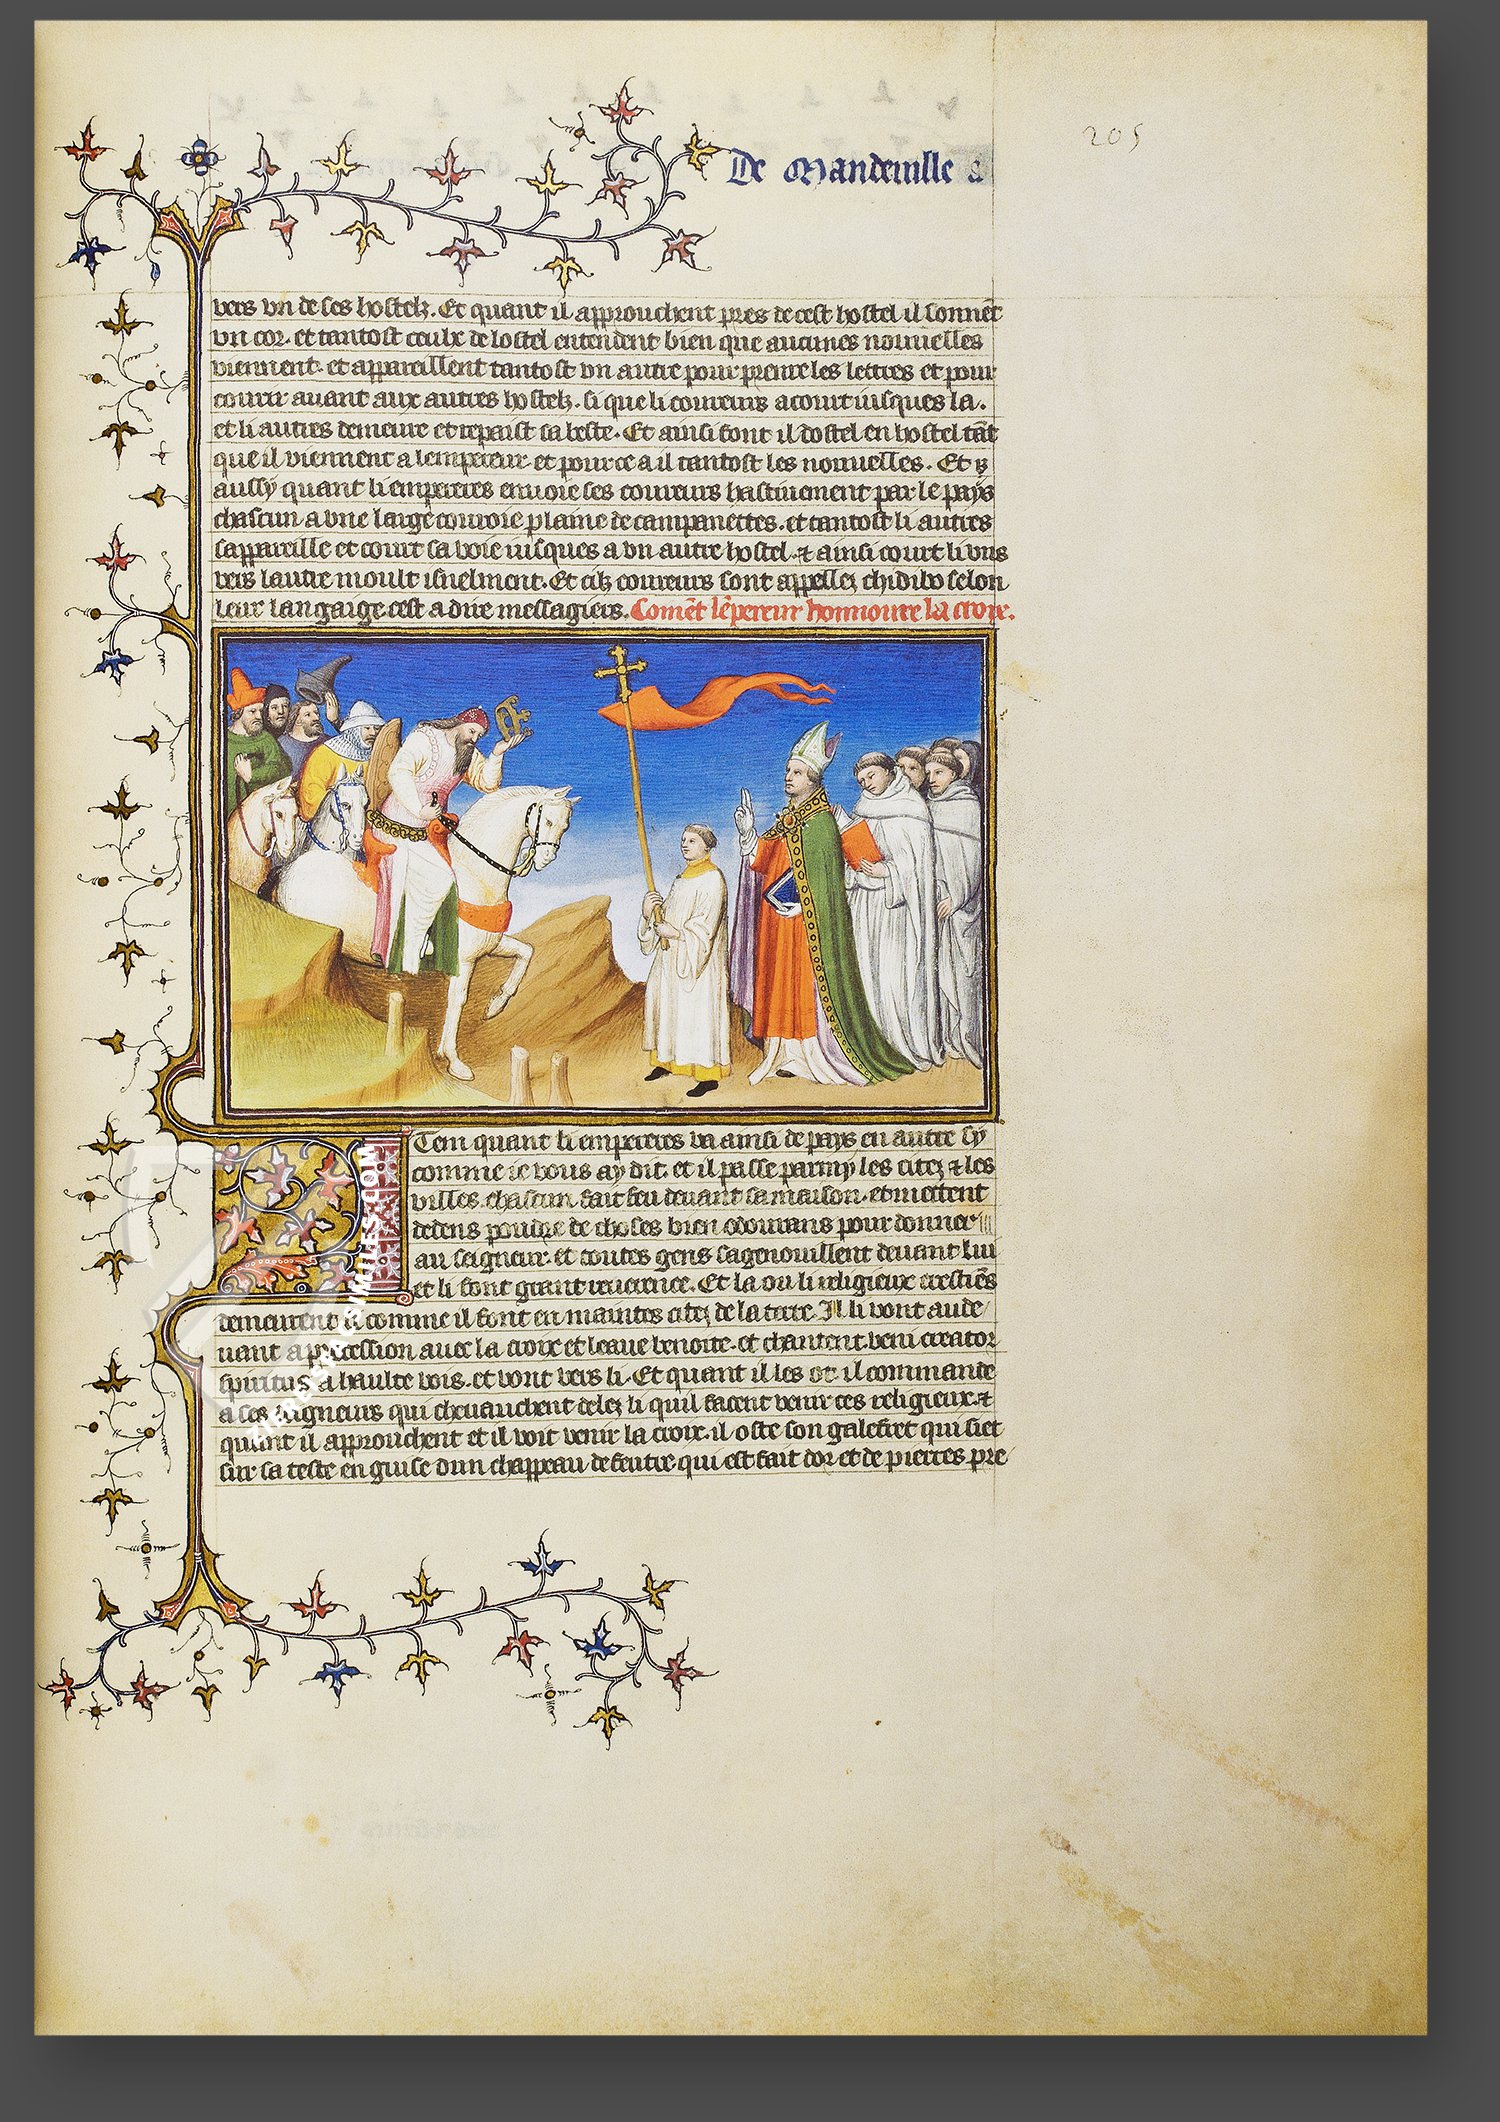 205
De Mandeuille
vers vn de ses hostelz. Et quant il approuchent pres de cest hostel il sonnēt
vn cor. et tantost ceulx de lostel entendent bien que aucunes nouuelles
viennent. et appareillent tantost vn autre pour prenre les lettres et pour
courir auant aux autres hostelz. si que li coureurs acourt iusques la.
et li autres demeure et repaist sa beste. Et ainsi font il dostel en hostel tāt
que il viennent a lempereur et pour ce a il tantost les nouuelles. Et
aussy quant li empereres enuoie ses coureurs hastiuement par le pays
chascun a vne large couroie plaine de campanettes. et tantost li autres
sappareille et court sa voie iusques a vn autre hostel. ⁊ ainsi court li vns
vers lautre moult isnelment. Et cilz coureurs sont appellez chidibo selon
leur langaige. cest a dire messagiers. Comēt lēpereur honnoure la croix.
Item quant li empereres va ainsi de pays en autre sy
comme ie vous ay dit. et il passe parmy les citez ⁊ les
villes. chascun fait feu deuant sa maison. et mettent
dedens poudre de choses bien odourans pour donner
au seigneur. et toutes gens sagenouillent deuant lui
et li font grant reuerence. Et la ou li religieux crestiēs
demeurent si comme il font en maintes citez de la terre. Il li vont au de
uant a procession auec la croix et leaue benoite. et chantent. veni creator
spiritus a haulte vois. et vont vers li. Et quant il les ot. il commande
a ses seigneurs qui cheuauchent delez li quil facent venir ces religieux. ⁊
quant il approuchent et il voit venir la croix. il oste son galefret qui siet
sur sa teste en guise dun chappeau de feutre qui est fait dor et de pierres pre